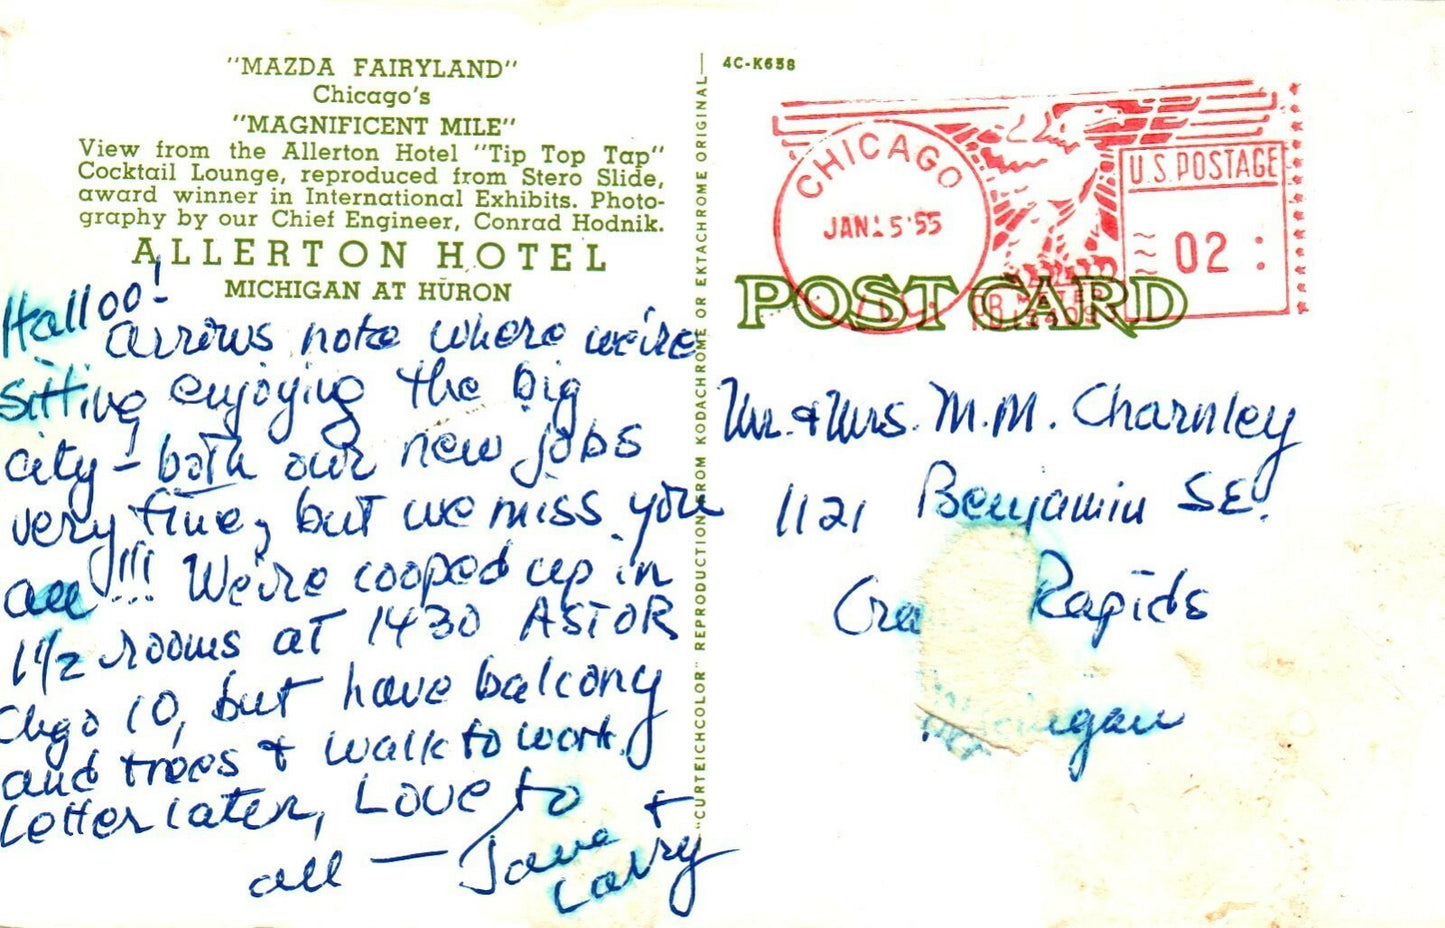 "MAZDA FAIRYLAND"
Chicago's
"MAGNIFICENT MILE"
View from the Allerton Hotel "Tip Top Tap"
Cocktail Lounge, reproduced from Stero Slide,
award winner in International Exhibits. Photo-
graphy by our Chief Engineer, Conrad Hodnik.
ALLERTON HOTEL
MICHIGAN AT HURON
Halloo!
Arrows note where we're
sitting enjoying the big
city - both our new jobs
very fine, but we miss you
all!!! We're cooped up in
1 1/2 rooms at 1430 ASTOR
Chgo 10, but have balcony
and trees + walk to work.
Letter later, Love to
all — Jane +
Larry
"CURTEICHCOLOR" REPRODUCTION FROM KODACHROME OR EKTACHROME ORIGINAL
4C-K658
CHICAGO
JAN 15 '55
ILL.
U.S. POSTAGE
02
PB METER
POST CARD
Mr. & Mrs. M.M. Charnley
1121 Benjamin SE.
Gra Rapids
Michigan